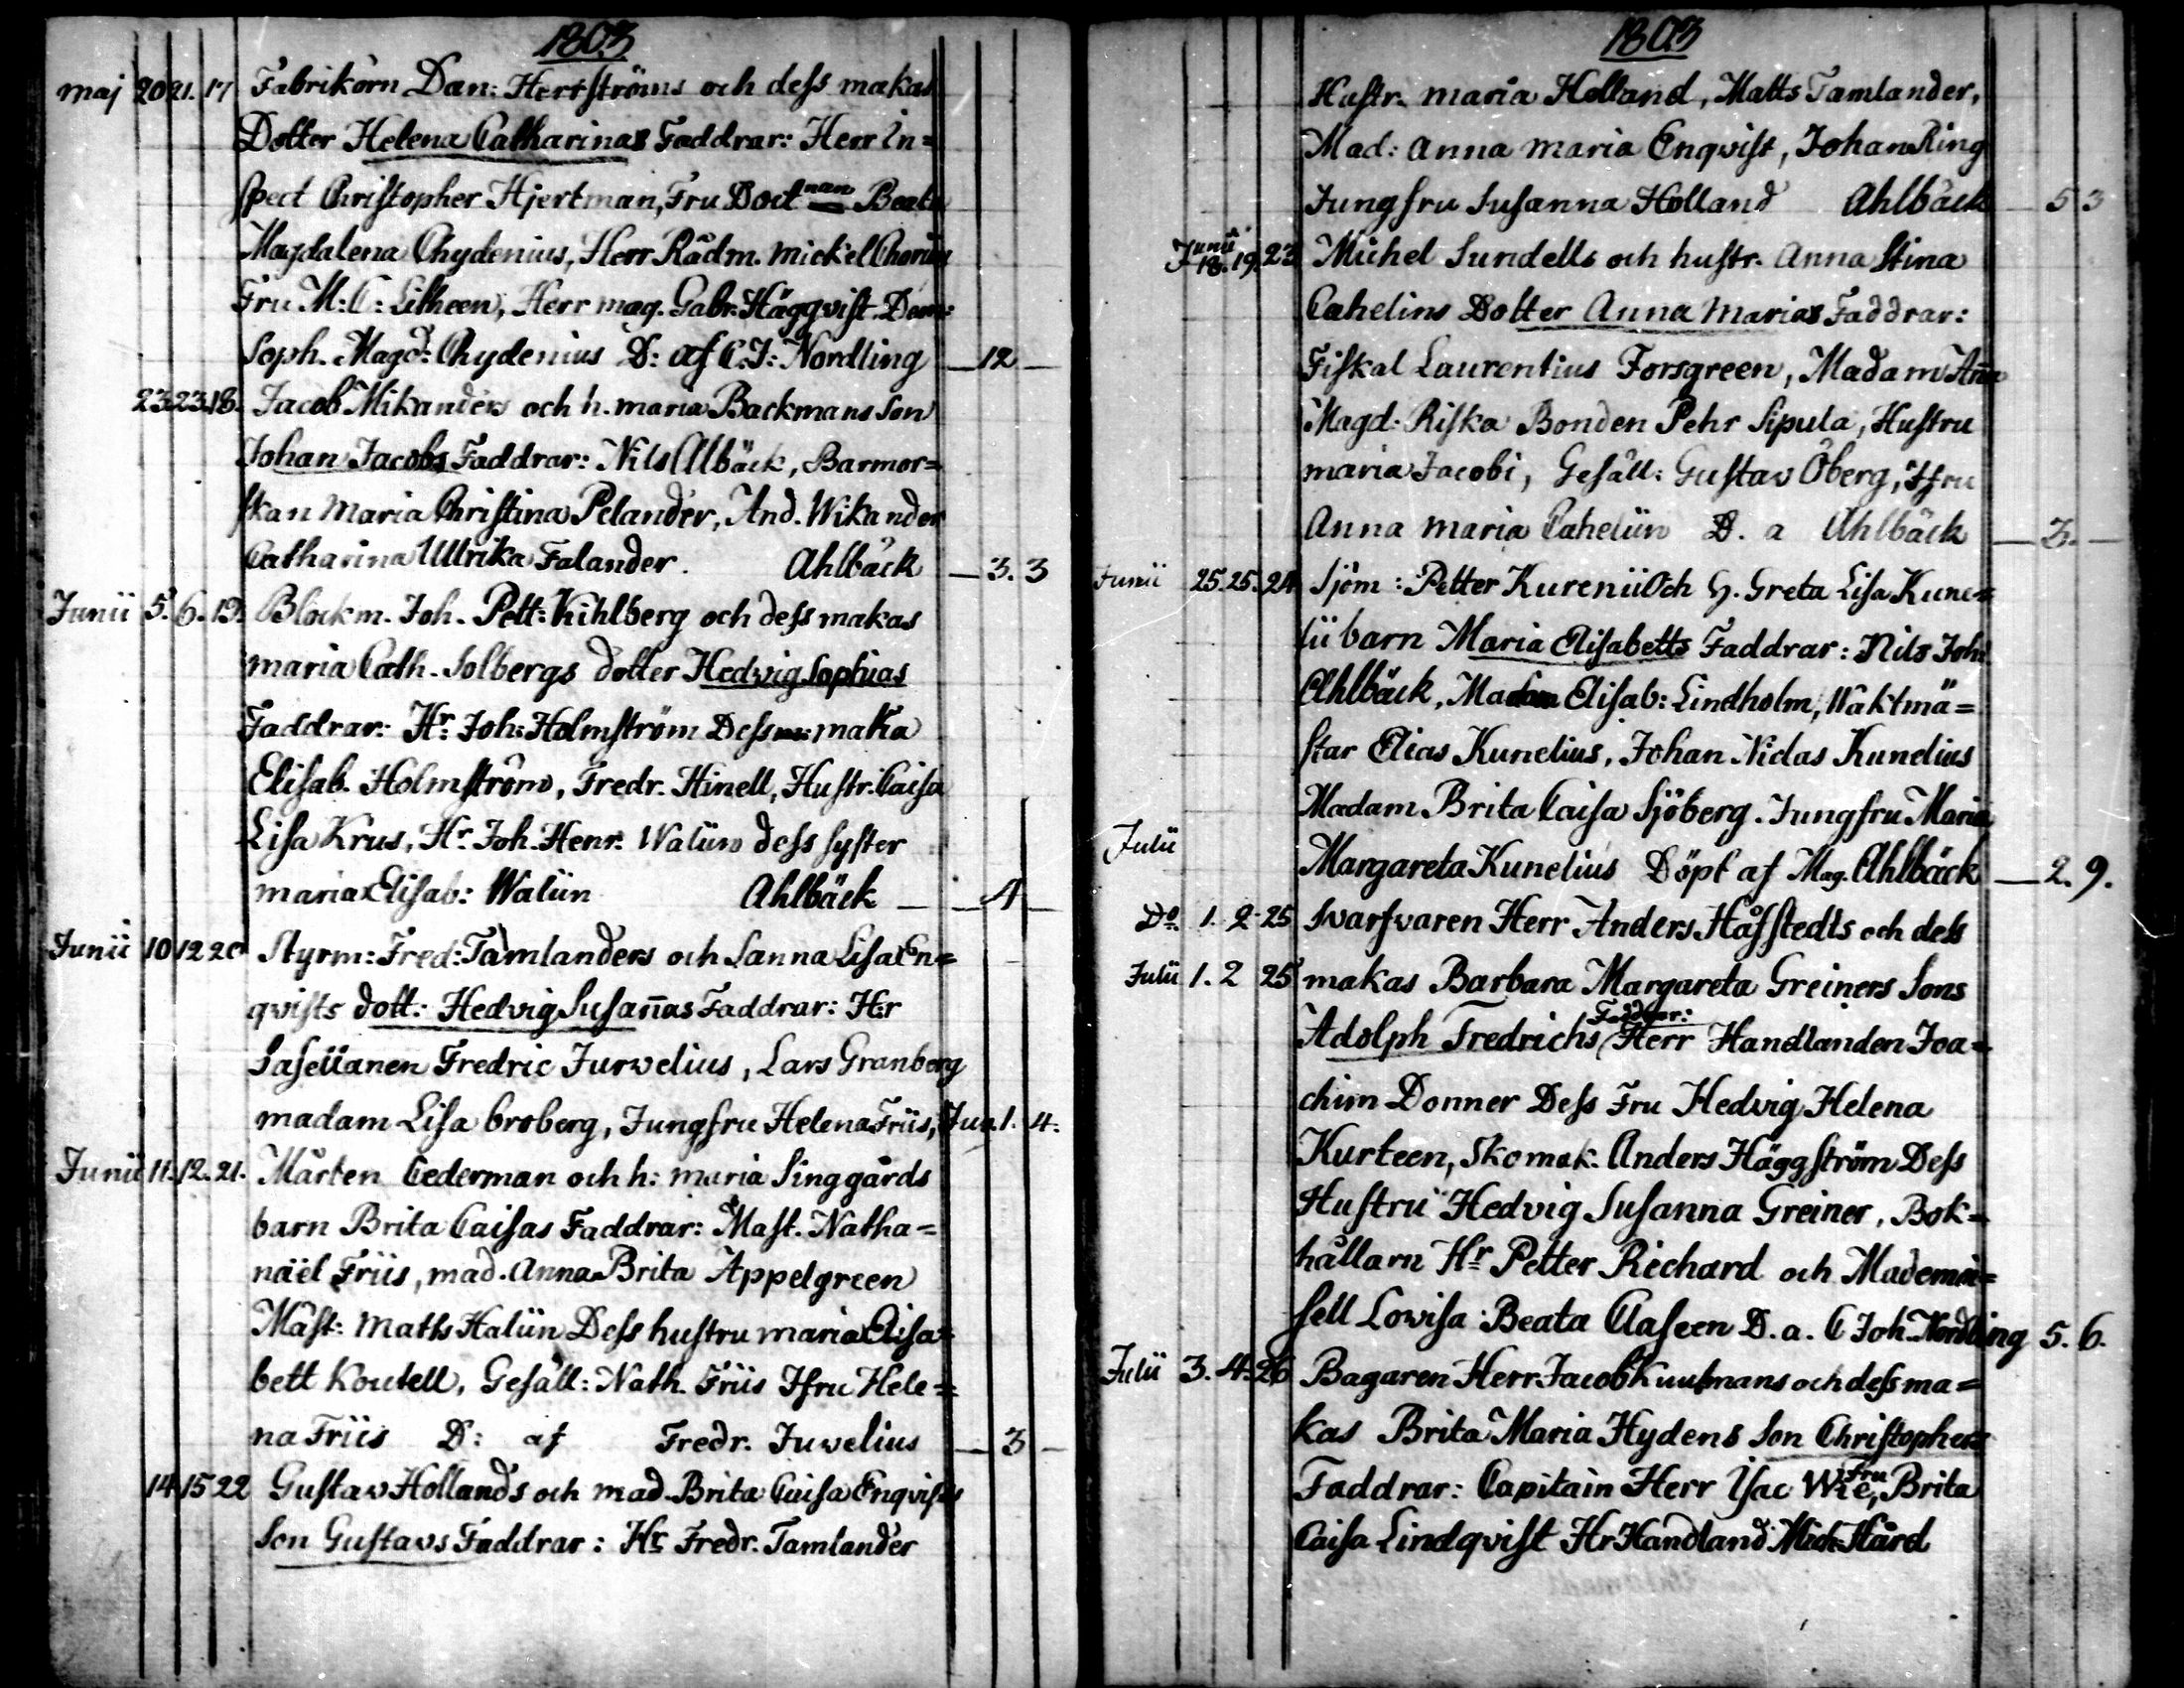 1803
maj 20 21. 17 Fabrikörn Dan: Hertströms och dess makas
Dotter Helena Catharinas Faddrar: Herr In=
spect Christopher Hjertman, Fru Doct nan Beata
Magdalena Chydenius, Herr Rådm. Mickel Chorin
Fru M: C: Litheen, Herr mag. Gabr. Häggqvist. Dem:
Soph. Magd: Chydenius D: af C. J: Nordling — 12 —
23. 23. 18. Jacob Mikanders och h. maria Backmans Son
Johan Jacobs Faddrar: Nils Albäck, Barmor=
skan Maria Christina Pelander, And. Wikander
Catharina Ullrika Falander. Ahlbäck — 3. 3
Junii 5. 6. 19. Blockm. Joh. Pett: Kihlberg och dess makas
maria Cath. Solbergs dotter Hedvig Sophias
Faddrar: Hr. Joh: Holmström Dess maka
Elisab. Holmström, Fredr. Hinell, Hustr. Caisa
Lisa Krus, Hr. Joh. Henr. Walün dess syster
maria Elisab: Walün Ahlbäck — 4 —
Junii 10 12 20 Styrm: Fred: Tamlanders och Sanna Lisa En=
qvists dott: Hedvig Susan̄as Faddrar: H:r
Fredric Juvelius, Lars Granberg
madam Lisa broberg, Jungfru Helena Friis, Juv. 1. 4.
Junii 11. 12. 21. Mårten Cederman och h: maria Singgårds
barn Brita Caisas Faddrar: Mäst. Natha=
näël Friis, mad. Anna Brita Appelgreen
Mäst: Maths Halün Dess hustru maria Elisa=
bett Koutell, Gesäll: Nath. Friis Jfru Hele=
na Friis D: af Fredr. Juvelius — 3 —
14 15 22 Gustav Hollands och mad. Brita Caisa Enqvists
Son Gustavs Faddrar: Hr Fredr. Tamlander
1803
Hustr. maria Holland, Matts Tamlander,
Mad: Anna maria Enqvist, Johan Ring
Jungfru Susanna Holland Ahlbäck 5 3
Junii 18. 19. 23 Michel Sundells och hustr. Anna Stina
Cahelins Dotter Anna Marias Faddrar:
Fiskal Laurentius Forsgreen, Madam An̄a
Magd: Riska Bonden Pehr Sipula, Hustru
maria Jacobi, Gesäll: Gustav Öberg, Jfru
Anna maria Cahelün D. a Ahlbäck — 3. —
Junii 25. 25. 24 Sjöm: Petter Kurenii Och H. Greta Lisa Kune=
lii barn Maria Elisabetts Faddrar: Nils Joh:
Ahlbäck, Madam Elisab: Lindholm, Waktmä=
star Elias Kunelius, Johan Niclas Kunelius
Madam Brita Caisa Sjöberg. Jungfru Maria
Julii
Margareta Kunelius Döpt af Mag. Ahlbäck — 2. 9.
Do. 1. 2. 25 Svarfvaren Herr Anders Håfstedts och dess
Julii 1. 2 25 makas Barbara Margareta Greiners Sons
Adolph Fredrichs Faddrar: Herr Handlanden Joa=
chim Donner Dess Fru Hedvig Helena
Kurteen, Skomak. Anders Häggström Dess
Hustru Hedvig Susanna Greiner, Bok=
hållarn Hr Petter Richard och Mademoi=
sell Lovisa Beata Claseen D. a. C Joh. Nordling 5. 6.
Julii 3. 4. 26 Bagaren Herr Jacob Kuutmans och dess ma=
kas Brita Maria Hydens Son Christophers
Faddrar: Capitain Herr Isac Wie, Fru Brita
Caisa Lindqvist Hr Handland. Mich. Hård